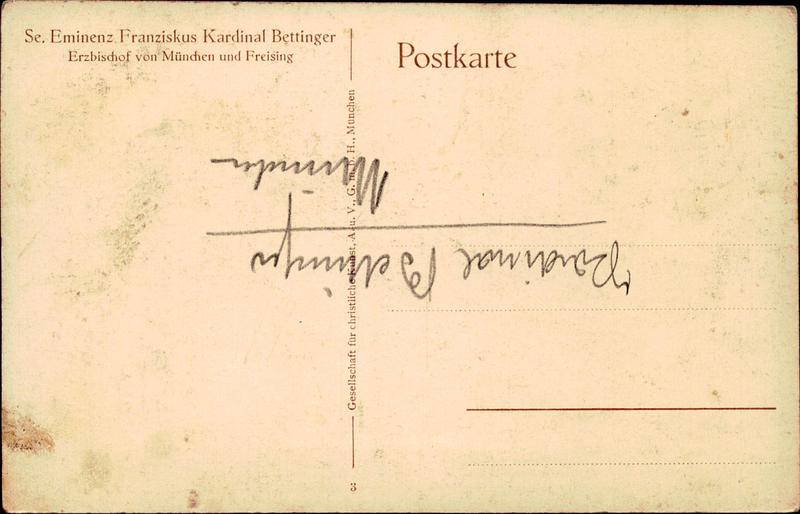 Se. Eminenz Franziskus Kardinal Bettinger
Erzbischof von München und Freising
Postkarte
Gesellschaft für christliche Kunst, A. u. V., G. m. b. H., München
3
Kardinal Bettinger
München